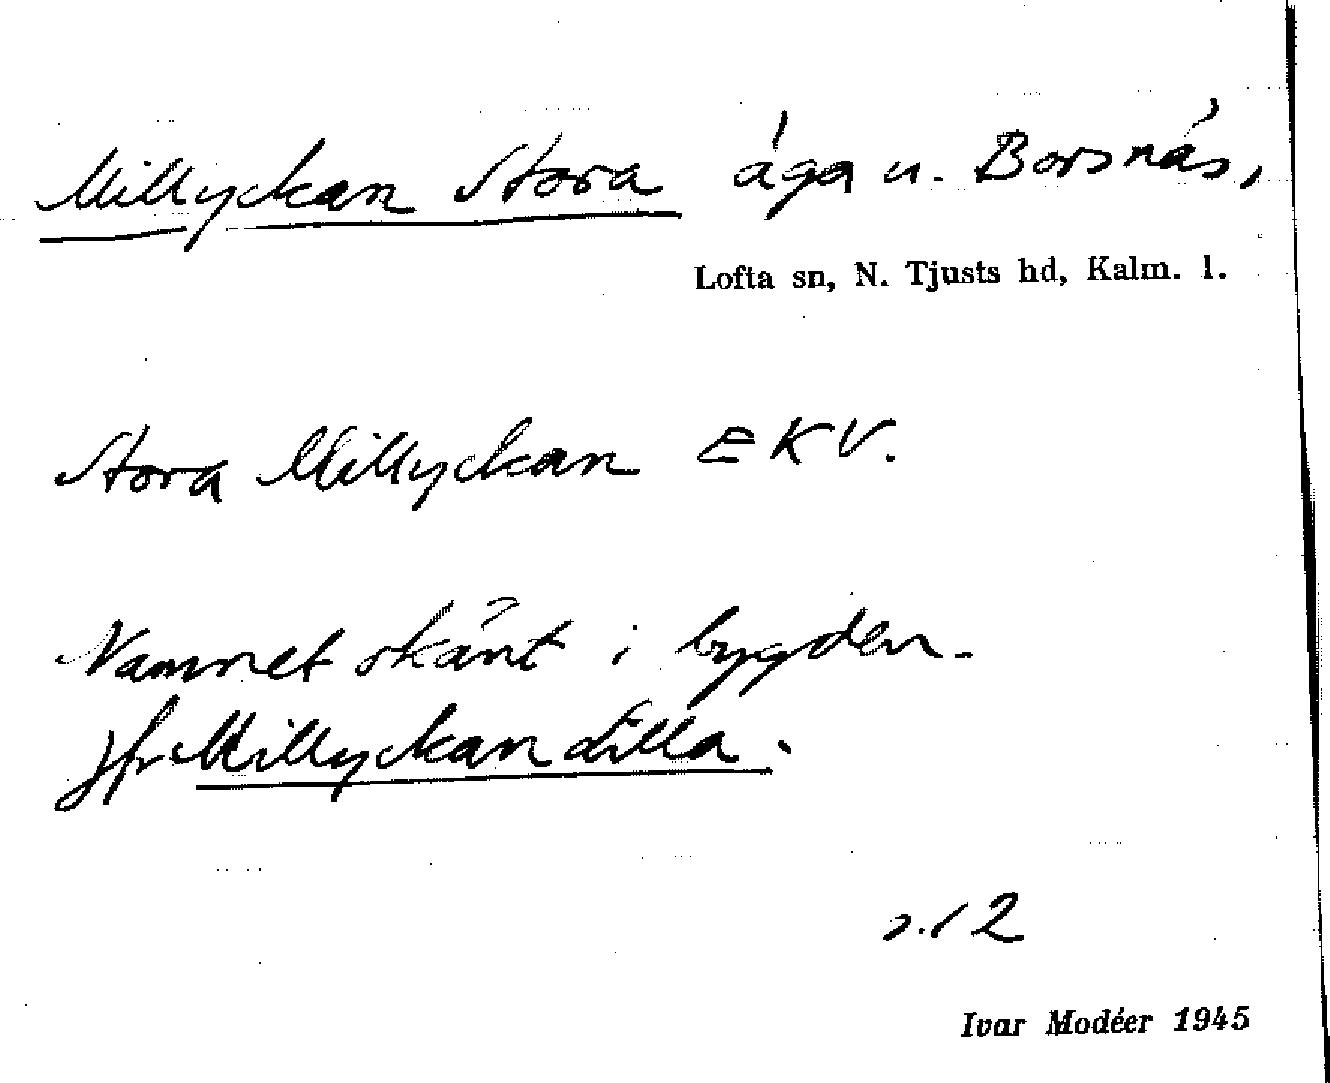 Millyckan Stora äga u. Borsnäs,
Lofta sn, N. Tjusts hd, Kalm. l.
Stora Millyckan EKV.
Namnet okänt i bygden.
Jfr Millyckan Lilla.
s. 12
Ivar Modéer 1945